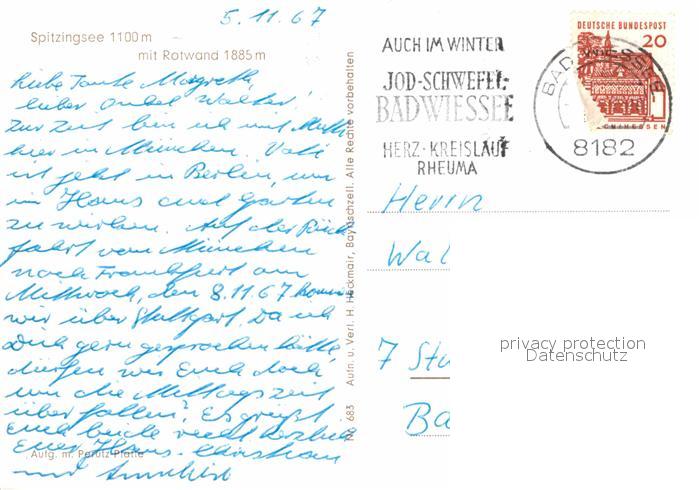 5.11.67
Spitzingsee 1100 m
mit Rotwand 1885 m
Liebe Tante Magreth,
lieber Onkel Walter!
Zur Zeit bin ich mit Mutti
hier in München. Vati
ist jetzt in Berlin, um
im Haus und Garten
zu wirken. Auf der Rück
fahrt von München
nach Frankfurt am
Mittwoch, den 8.11.67 kommen
wir über Stuttgart. Da ich
Dich gern gesprochen hätte,
dürfen wir Euch doch
um die Mittagszeit
überfallen? Es grüßt
Euch beide recht herzlich
Euer Hans-Christian
und
Aufg. m. Perutz Platte
Nr. 683 Aufn. u. Verl. H. Heckmair, Bayrischzell. Alle Rechte vorbehalten
AUCH IM WINTER
JOD-SCHWEFEL-
BAD WIESSEE
HERZ-KREISLAUF
RHEUMA
DEUTSCHE BUNDESPOST
20
BAD WIESSEE
8182
Herrn
Wal
7 Stu
Ba
privacy protection
Datenschutz